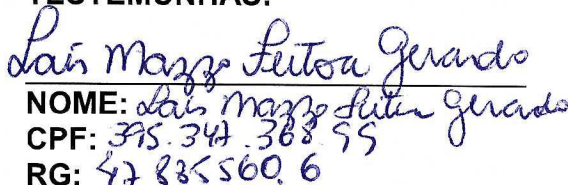 TESTEMUNHAS:
Laís Mazzo Feitosa Gerardo
NOME: Laís Mazzo Feitosa Gerardo
CPF: 395.347.368 99
RG: 47 835560.6